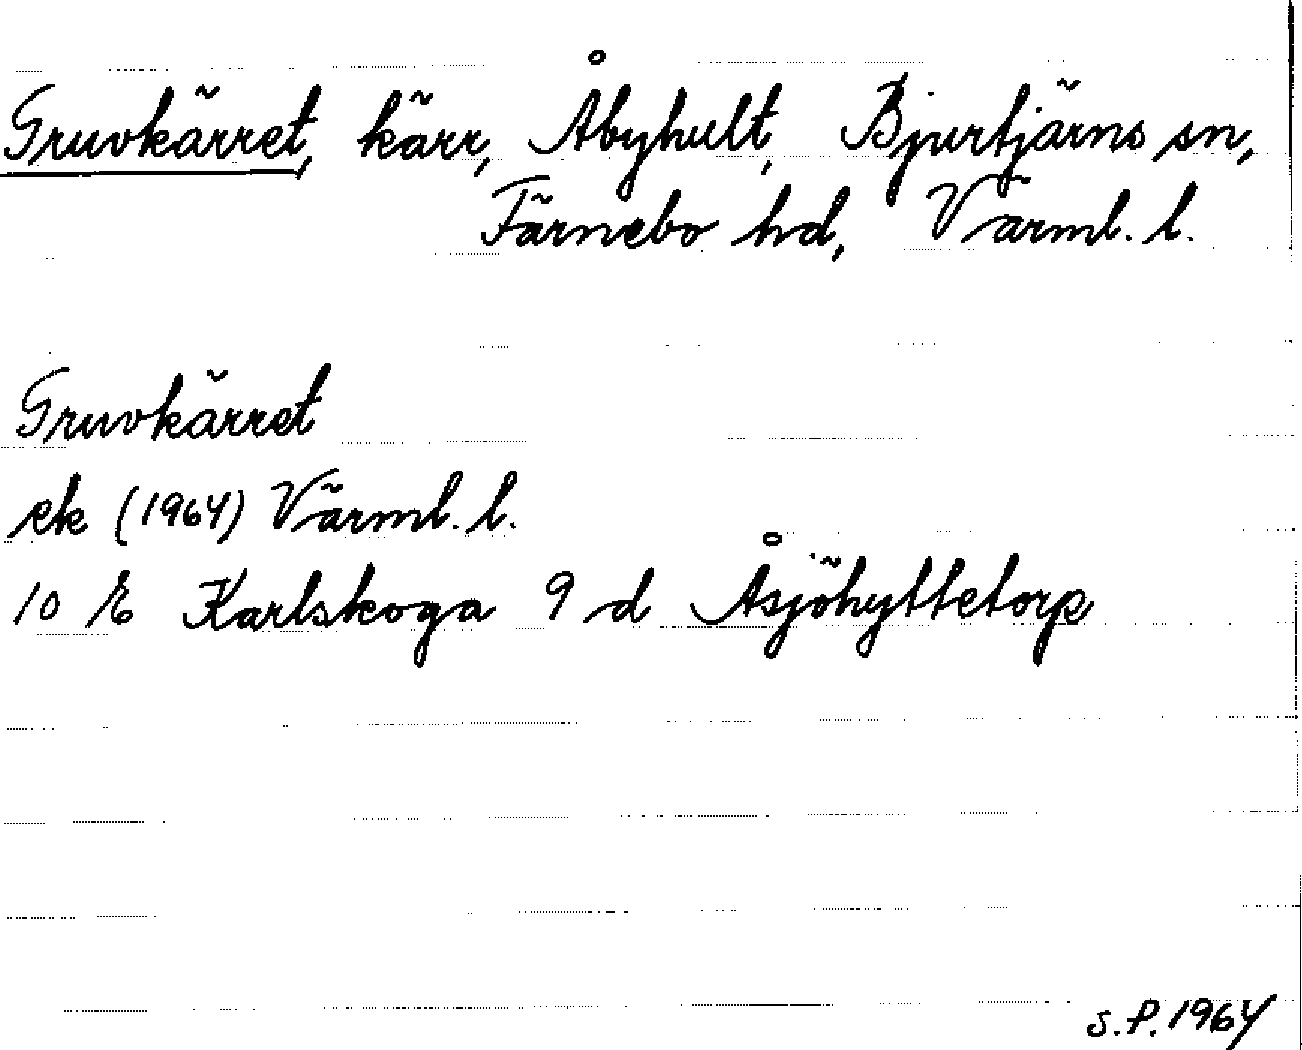 Gruvkärret, kärr, Åbyhult, Bjurtjärns sn,
Färnebo hd, Värml. l.
Gruvkärret
ek (1964) Värml. l.
10 E Karlskoga 9 d Åsjöhyttetorp
S.P. 1964